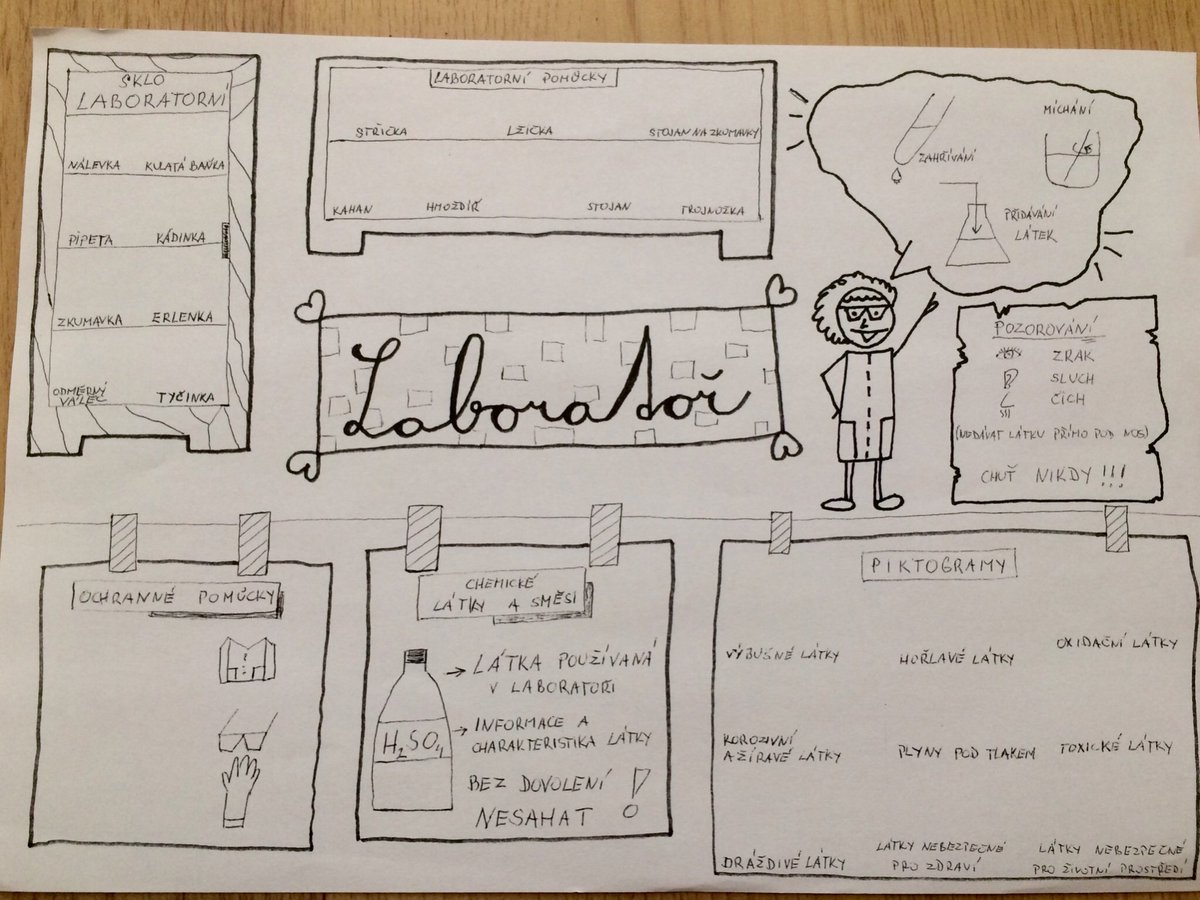 SKLO
LABORATORNÍ
NÁLEVKA KULATÁ BAŇKA
PIPETA KÁDINKA
ZKUMAVKA ERLENKA
ODMĚRNÝ
VÁLEC TYČINKA
LABORATORNÍ POMŮCKY
STŘIČKA LŽIČKA STOJAN NA ZKUMAVKY
KAHAN HMOŽDÍŘ STOJAN TROJNOŽKA
ZAHŘÍVÁNÍ
MÍCHÁNÍ
PŘIDÁVÁNÍ
LÁTEK
Laboratoř
POZOROVÁNÍ
ZRAK
SLUCH
ČICH
(NEDÁVAT LÁTKU PŘÍMO POD NOS)
CHUŤ NIKDY !!!
OCHRANNÉ POMŮCKY
CHEMICKÉ
LÁTKY A SMĚSI
H₂SO₄
→ LÁTKA POUŽÍVANÁ
V LABORATOŘI
→ INFORMACE A
CHARAKTERISTIKA LÁTKY
BEZ DOVOLENÍ
NESAHAT !
PIKTOGRAMY
VÝBUŠNÉ LÁTKY HOŘLAVÉ LÁTKY OXIDAČNÍ LÁTKY
KOROZIVNÍ
A ŽÍRAVÉ LÁTKY PLYNY POD TLAKEM TOXICKÉ LÁTKY
DRÁŽDIVÉ LÁTKY
LÁTKY NEBEZPEČNÉ
PRO ZDRAVÍ
LÁTKY NEBEZPEČNÉ
PRO ŽIVOTNÍ PROSTŘEDÍ